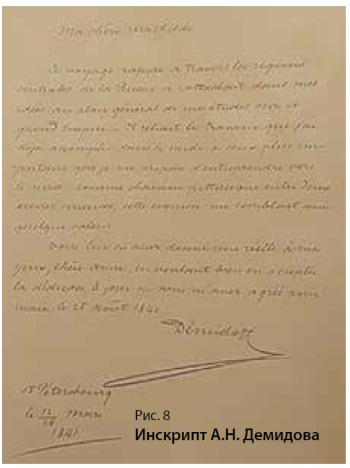 Ma chère Mathilde
Ce voyage rapide à travers les régions
centrales de la Russie se rattachait dans mes
idées au plan général de mes études sur ce
grand Empire. Il reliait les travaux que j'ai
déjà accomplis dans le midi à ceux plus im-
portans que je me propose d'entreprendre vers
le nord. Comme chaînon pittoresque entre deux
œuvres, cette me semblait avoir
quelque valeur.
Vous lui en aurez donné une réelle à mes
yeux, chère amie, en voulant bien en accepter
la dédicace le jour où vous m'avez agréé pour
le 28 août 1840.
Démidoff
St Pétersbourg
le 12/24 Mars
1841
Рис. 8
Инскрипт А.Н. Демидова